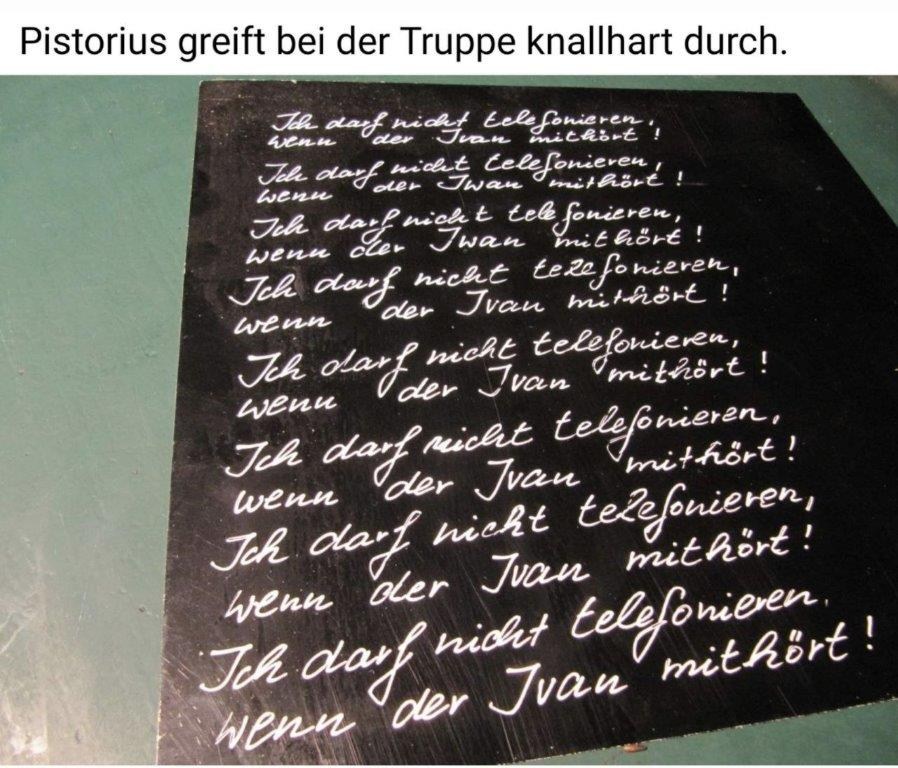 Pistorius greift bei der Truppe knallhart durch.
Ich darf nicht telefonieren,
wenn der Ivan mithört!
Ich darf nicht telefonieren,
wenn der Iwan mithört!
Ich darf nicht telefonieren,
wenn der Iwan mithört!
Ich darf nicht telefonieren,
wenn der Ivan mithört!
Ich darf nicht telefonieren,
wenn der Ivan mithört!
Ich darf nicht telefonieren,
wenn der Ivan mithört!
Ich darf nicht telefonieren,
wenn der Ivan mithört!
Ich darf nicht telefonieren.
wenn der Ivan mithört!